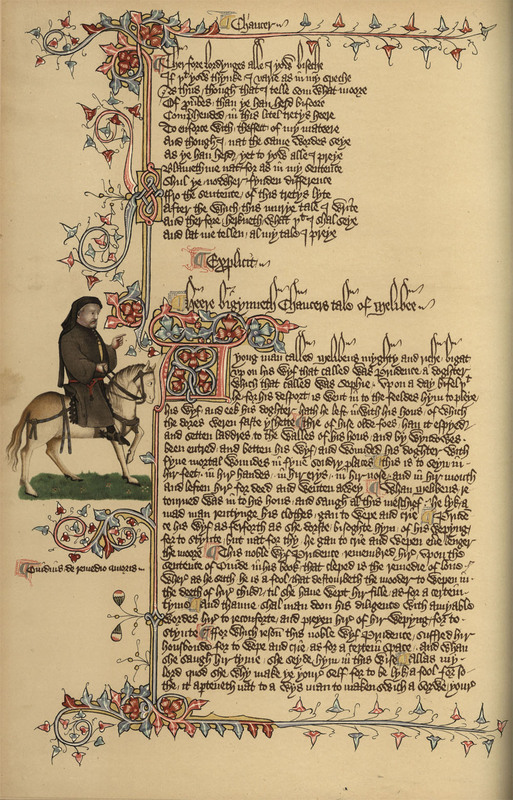 Chaucer
Therfore lordynges alle I yow biseche
If þt yow thynke I varie as in my speche
As thus though that I telle som what moore
Of prouerbes than ye han herd bifoore
Comprehended in this litel tretys heere
To enforce with theffect of my mateere
And though I nat the same wordes seye
As ye han herd yet to yow alle I preye
Blameth me nat for as in my sentence
Shul ye nowher fynden difference
Fro the sentence of this tretys lyte
After the which this murye tale I write
And therfore herkneth what þt I shal seye
And lat me tellen al my tale I preye
Explicit
Heere bigynneth Chaucers tale of Melibee
A yong man called Melibeus myghty and riche bigat
vp on his wyf that called was Prudence a doghter
which that called was Sophie Vpon a day bifel þt
he for his desport is went in to the feeldes hym to pleye
his wyf and eek his doghter hath he left in with his hous of which
the dores weren faste yshette thre of his olde foes han it espyed
and setten laddres to the walles of his hous and by wyndowes
been entred and betten his wyf and wounded his doghter with
fyue mortal woundes in fyue sondry places this is to seyn in
hir feet in hir handes in hir erys in hir nose and in hir mouth
and leften hir for deed and wenten awey Whan Melibeus re
tourned was in to his hous and saugh al this meschief he lyk a
mad man rentynge his clothes gan to wepe and crie Pruden
ce his wyf as ferforth as she dorste bisoghte hym of his wepyng
for to stynte but nat for thy he gan to crie and wepen euer lenger
the moore This noble wyf Prudence remembred hire vpon the
sentence of Ouide in his book that cleped is the remedie of loue
wher as he seith he is a fool that destourbeth the mooder to wepen in
the deeth of hir child til she haue wept hir fille as for a certein
tyme and thanne shal man doon his diligence with amyable
wordes hir to reconforte and preyen hir of hir wepyng for to
stynte ffor which reson this noble wyf Prudence suffred hir
housbonde for to wepe and crie as for a certein space and whan
she saugh hir tyme she seyde hym in this wise Allas my
lord quod she why make ye your self for to be lyk a fool for so
the it aperteneth nat to a wys man to maken swich a sorwe your
Ouidius de remedio amoris